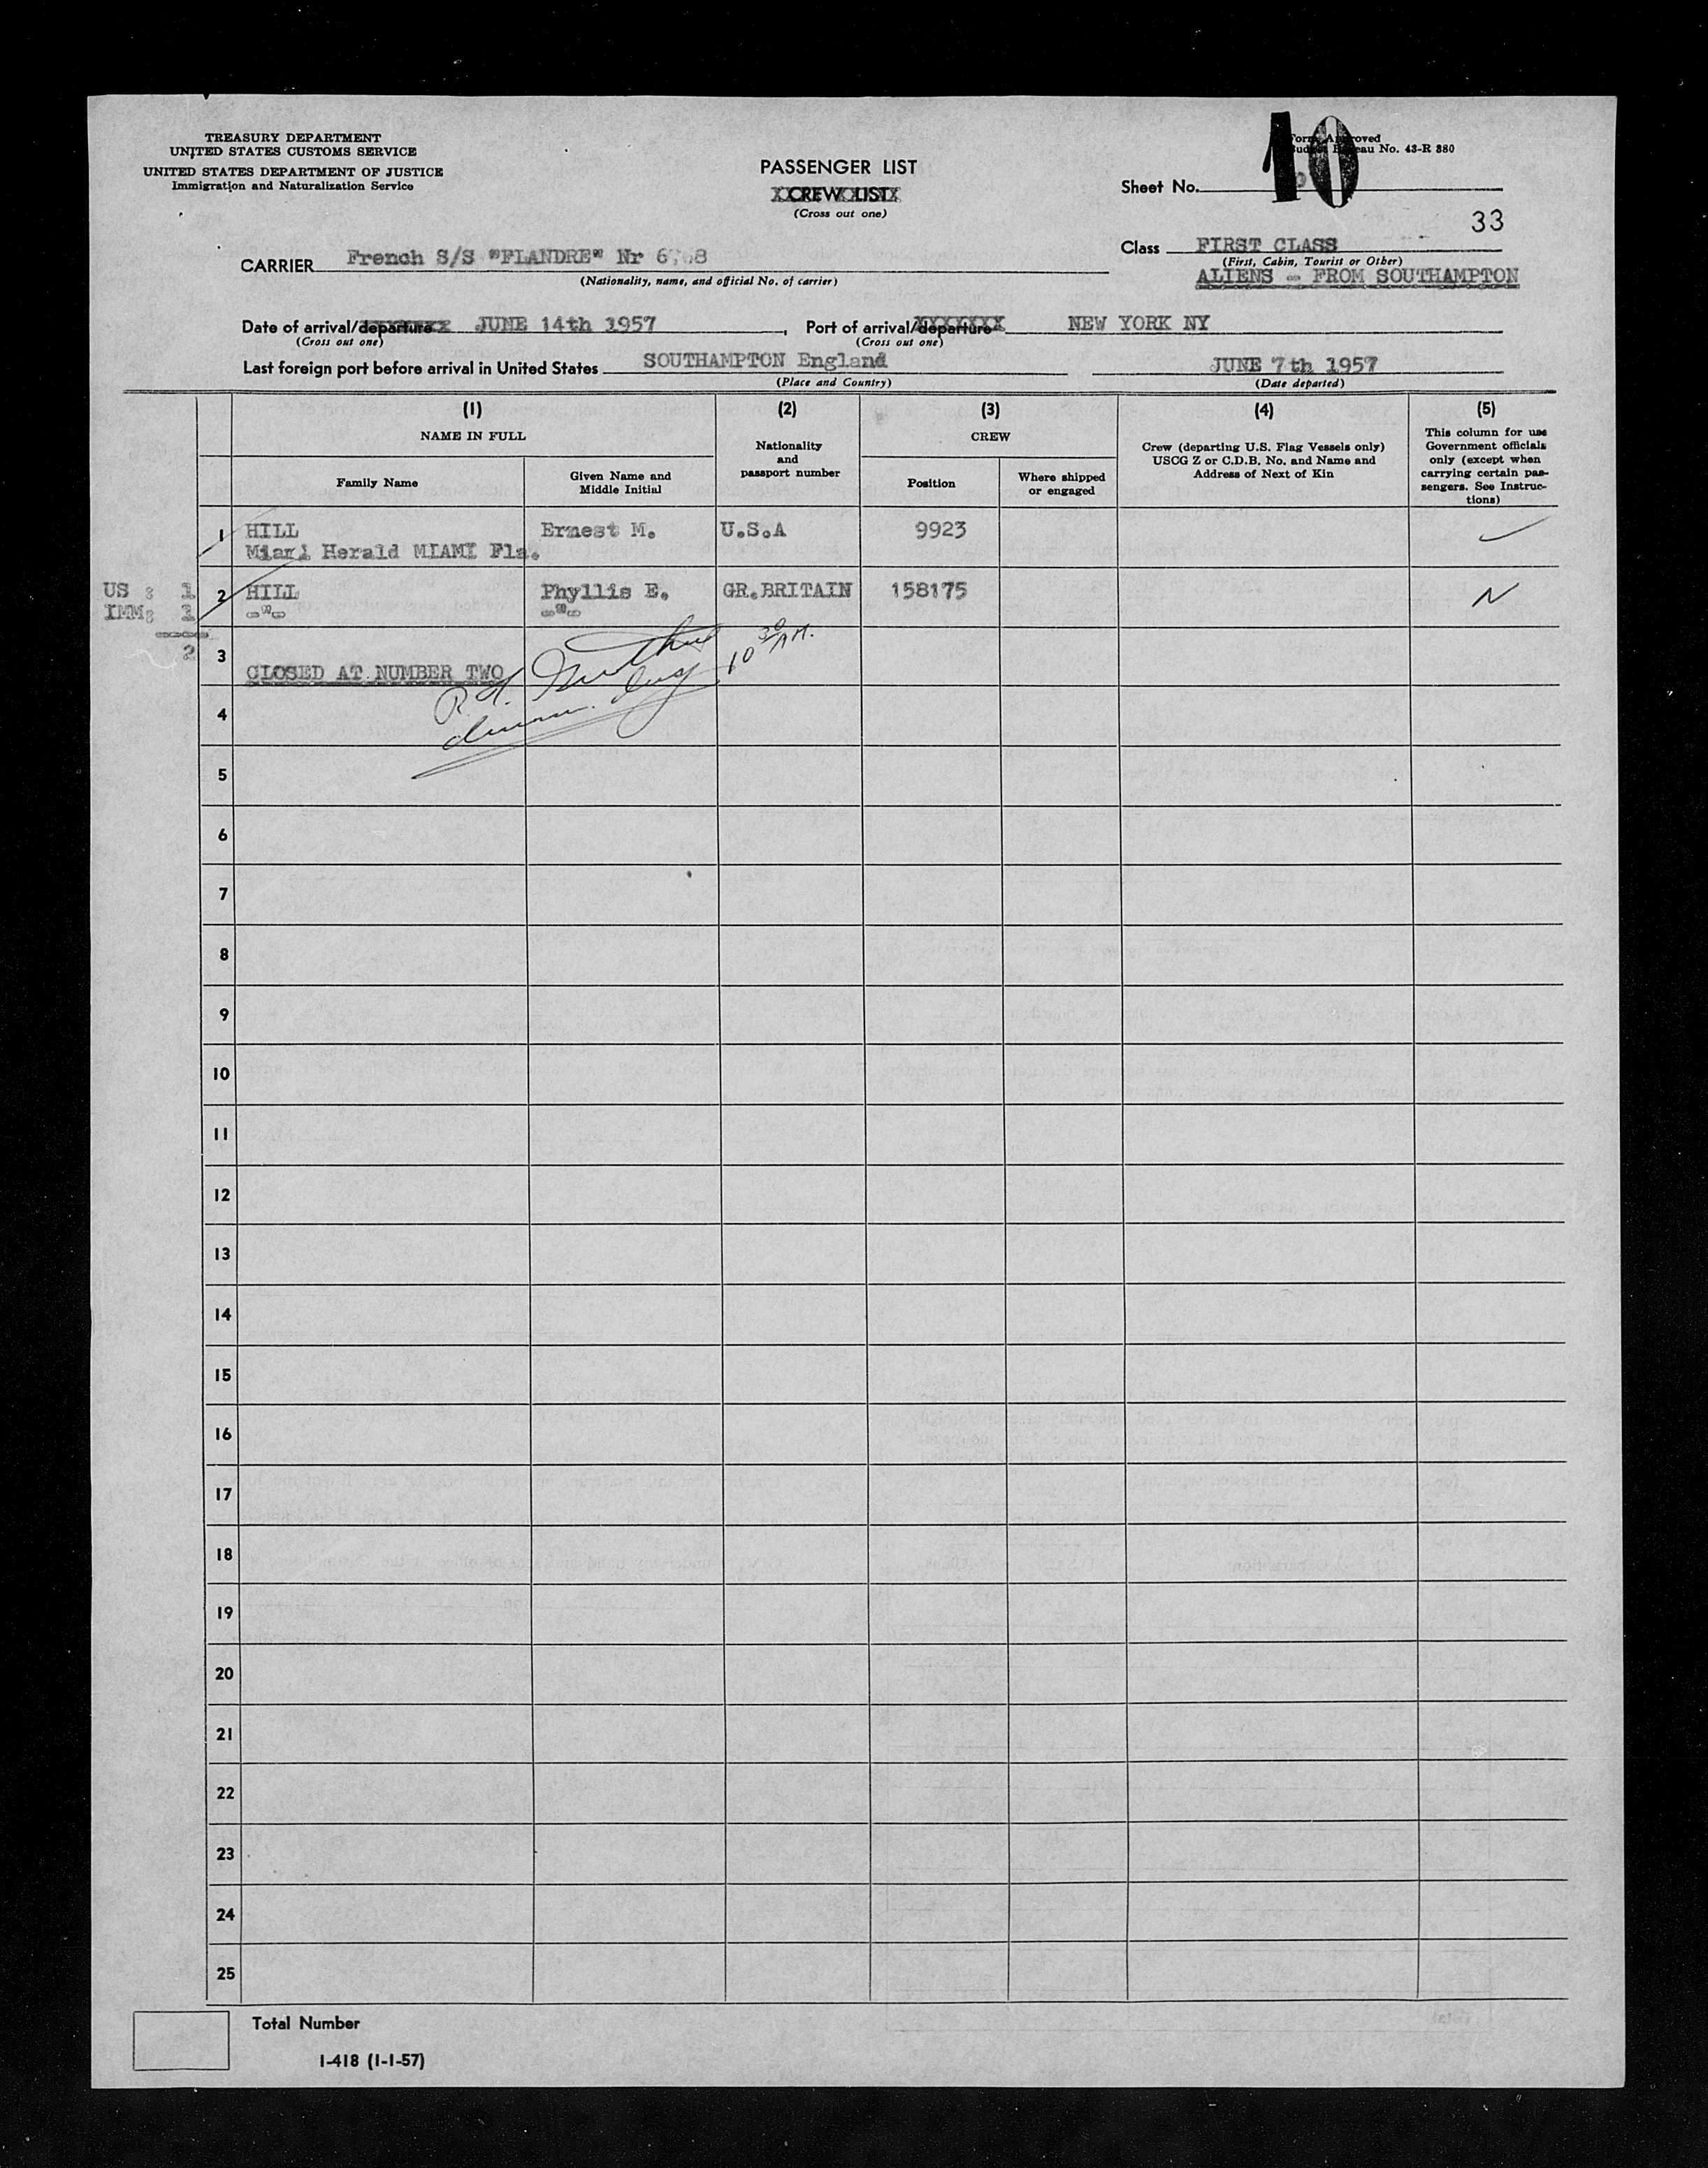 TREASURY DEPARTMENT
UNITED STATES CUSTOMS SERVICE
UNITED STATES DEPARTMENT OF JUSTICE
Immigration and Naturalization Service
PASSENGER LIST
CREW LIST
(Cross out one)
Form Approved
Budget Bureau No. 43-R 380
Sheet No. 10
33
Class FIRST CLASS
(First, Cabin, Tourist or Other)
ALIENS - FROM SOUTHAMPTON
CARRIER French S/S "FLANDRE" Nr
(Nationality, name, and official No. of carrier)
Date of arrival/departure JUNE 14th 1957, Port of arrival/departure NEW YORK NY
(Cross out one) (Cross out one)
Last foreign port before arrival in United States SOUTHAMPTON England JUNE 7th 1957
(Place and Country) (Date departed)
(1) (2) (3) (4) (5)
NAME IN FULL
Family Name
Given Name and
Middle Initial
Nationality
and
passport number
CREW
Position
Where shipped
or engaged
Crew (departing U.S. Flag Vessels only)
USCG Z or C.D.B. No. and Name and
Address of Next of Kin
This column for use
Government officials
only (except when
carrying certain pas-
sengers. See Instruc-
tions)
1 HILL Ernest M. U.S.A 9923
Miami Herald MIAMI Fla.
US : 1
2 HILL Phyllis E. GR.BRITAIN 158175 N
IMM: 1 -"- -"-
2
3
CLOSED AT NUMBER TWO
10 30 AM.
4
5
6
7
8
9
10
11
12
13
14
15
16
17
18
19
20
21
22
23
24
25
Total Number
I-418 (1-1-57)